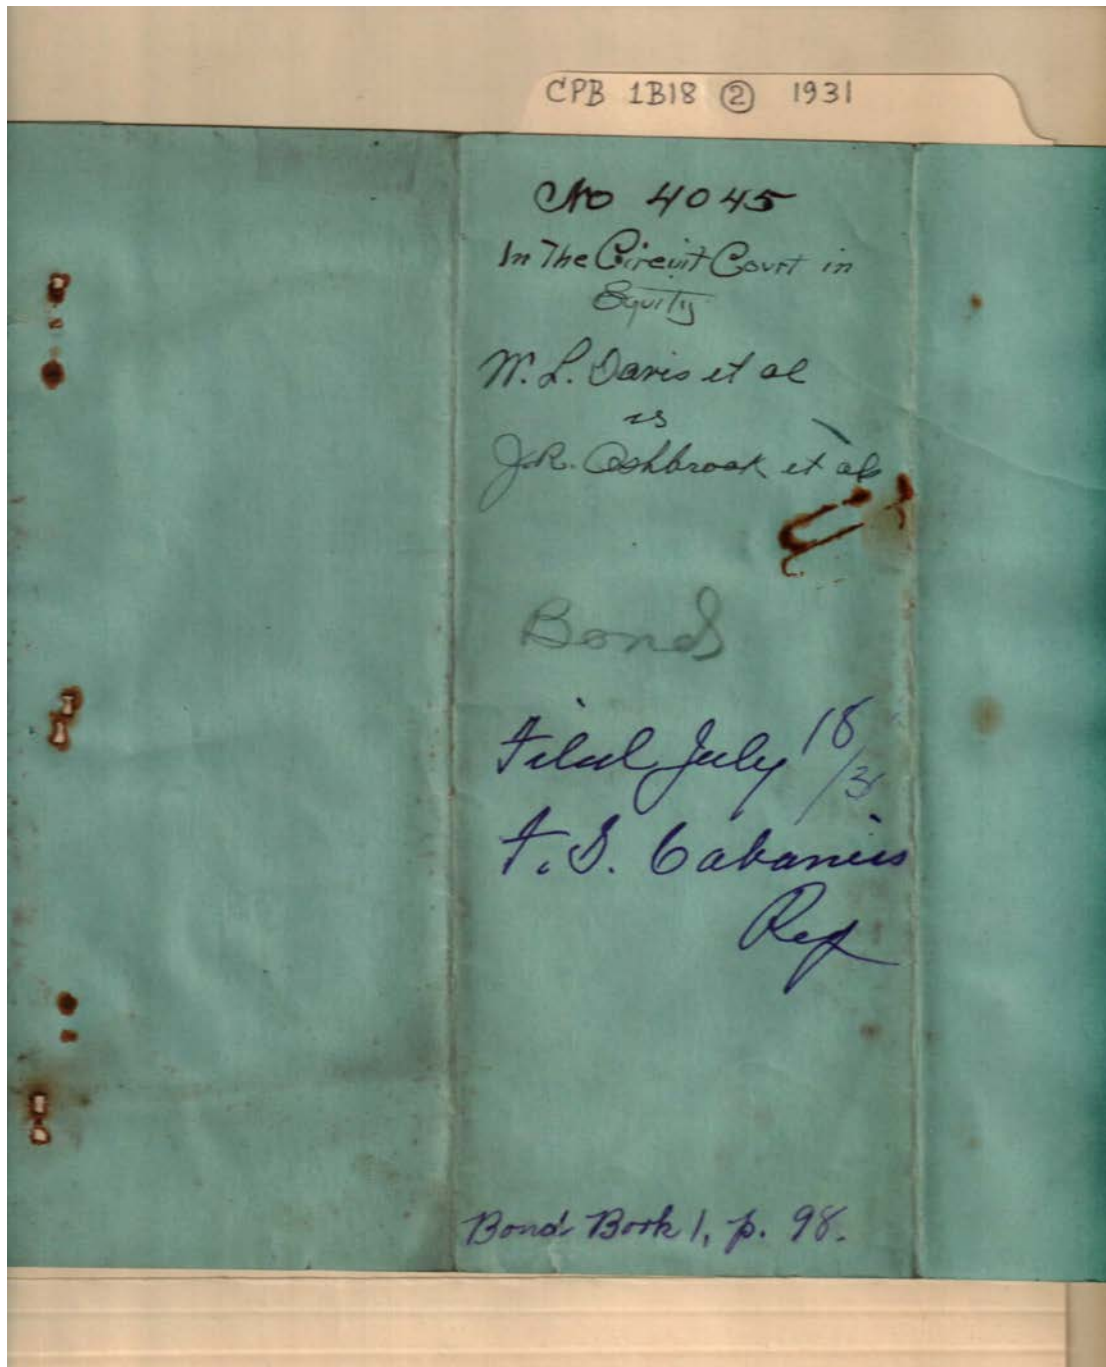 CPB 1B18 ② 1931
No 4045
In The Circuit Court in
Equity
W. L. Davis et al
vs
J.R. Ashbrook et als
Bond
Filed July 18
/31
F. S. Cabaniss
Reg
Bond Book 1, p. 98.